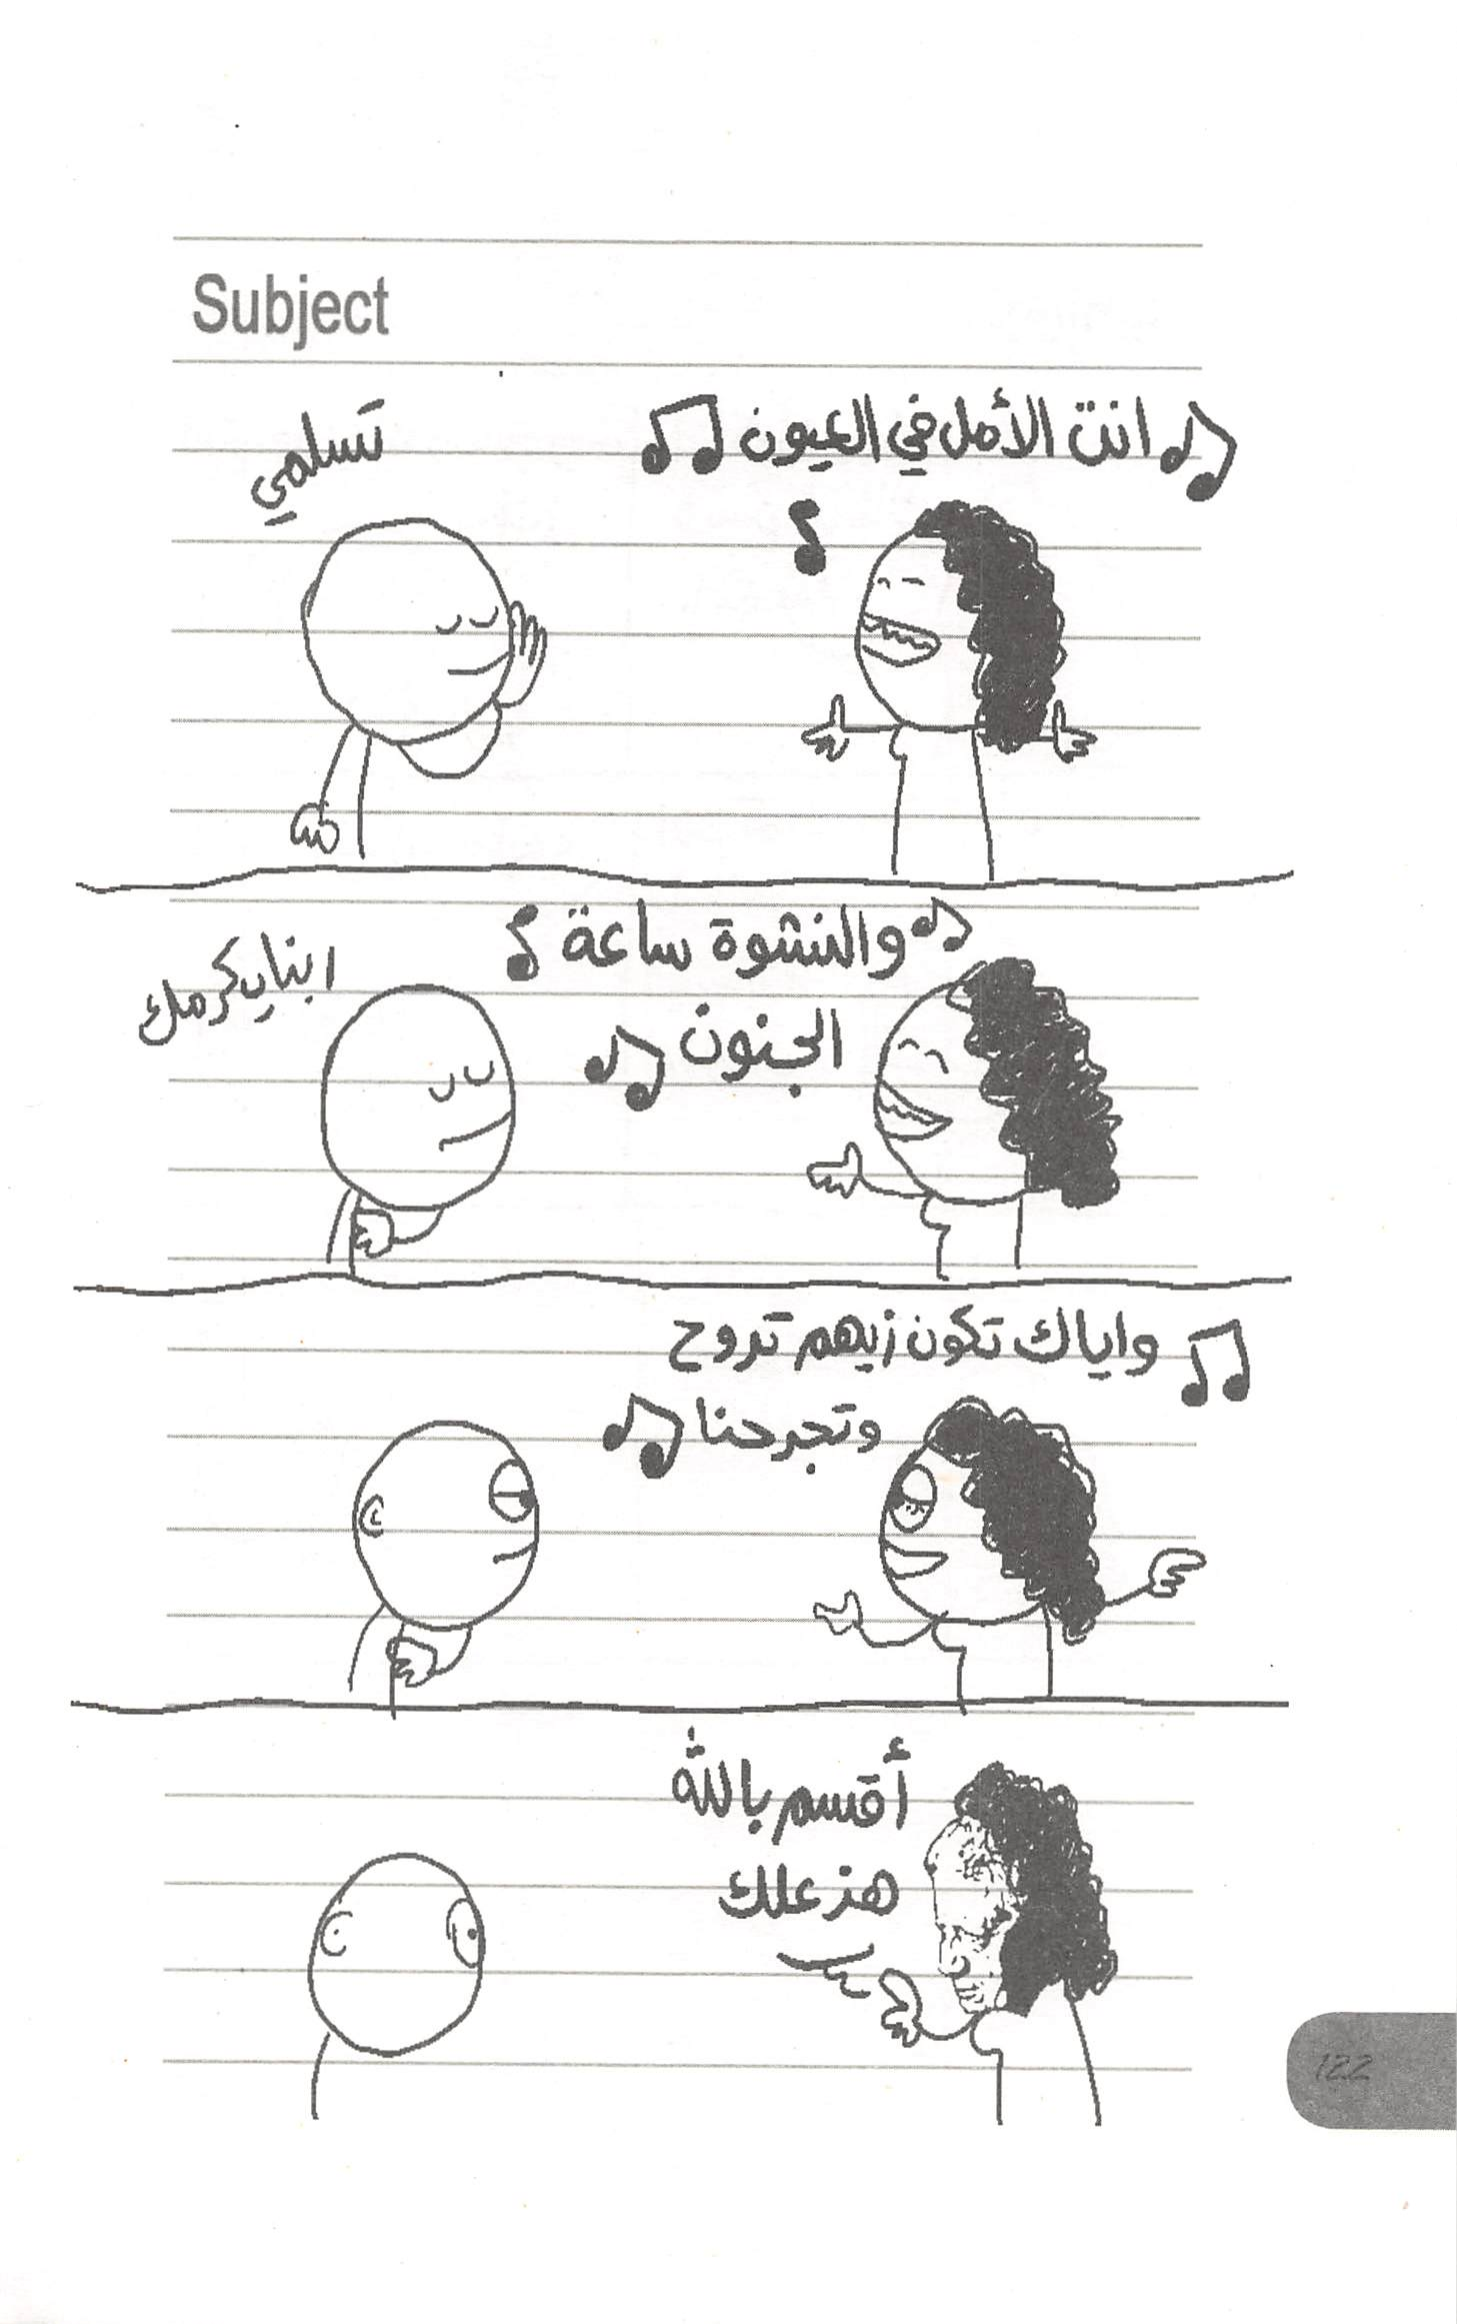 Subject
انت الأمل في العيون
تسلمي
والنشوة ساعة
الجنون
ابنا يكرمك
واياك تكون زيهم تروح
وتجرحنا
أقسم بالله
هزعلك
122